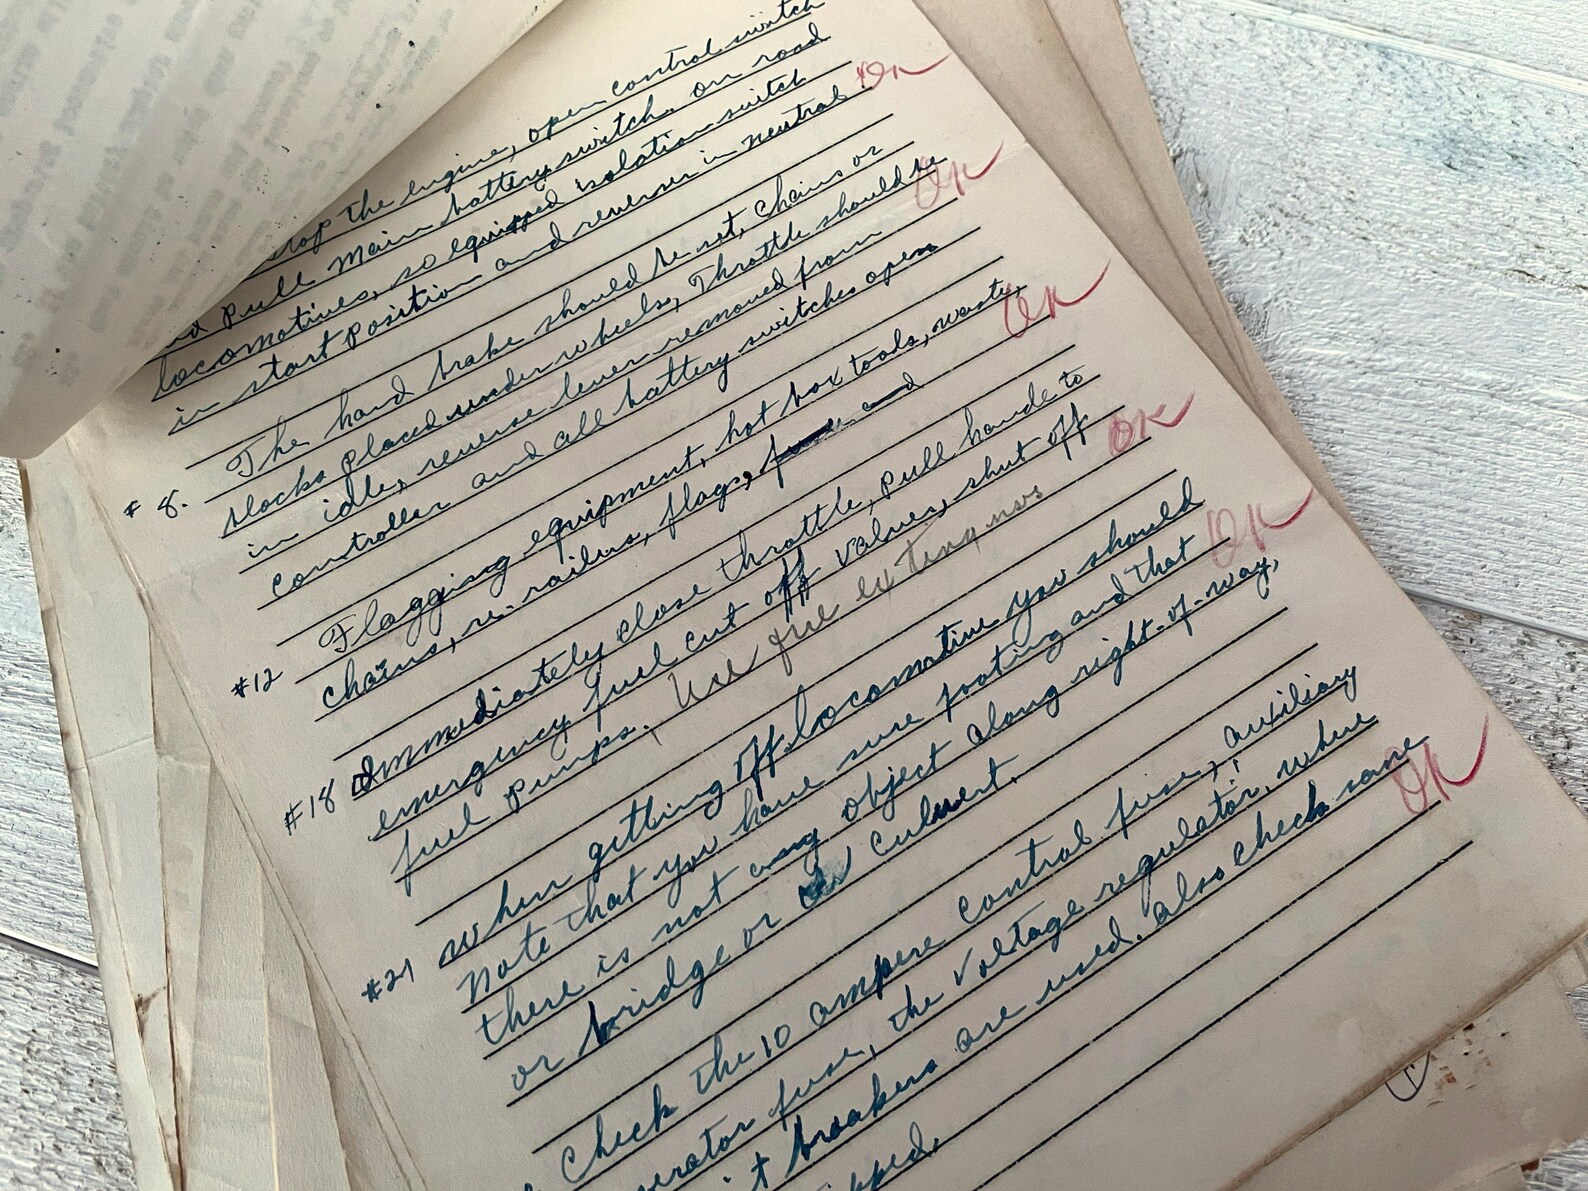 stop the engine, open control switch
and pull main battery switch. on road
locomotives, so equipped isolation switch
in start position and reverser in neutral. OK
# 8. The hand brake should be set, chains or
blocks placed under wheels, Throttle should be OK
in idle, reverse lever removed from
controller and all battery switches open
#12 Flagging equipment, hot box tools, waste, OK
chains, re-railers, flags, fusee and
#18 Immediately close throttle, pull handle to
emergency fuel cut off valves, shut off OK
fuel pumps. Use fire extinguishers
#21 When getting off locomotive you should
note that you have sure footing and that OK
there is not any object along right-of-way,
or bridge or culvert.
Check the 10 ampere control fuse, auxiliary
fuse, the voltage regulator, where
breakers are used. also check same OK